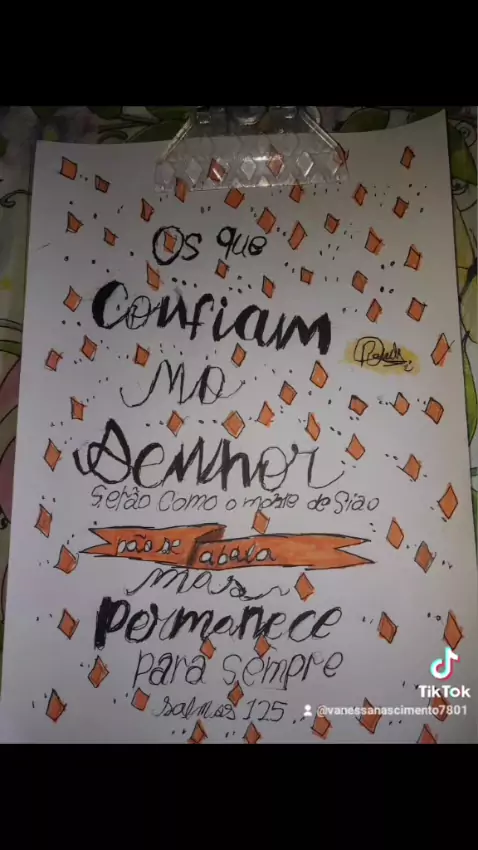 Os que
Confiam
no
Senhor
Serão Como o monte de Sião
não se abala
mas
Permanece
para sempre
salmos 125
TikTok
@vanessanascimento7801